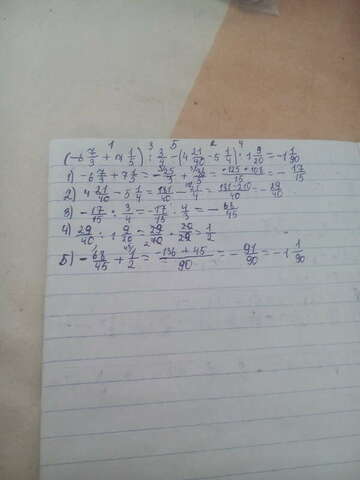 1 3 5 2 4
(-6 7/3 + 7 1/5) : 3/4 - (4 21/40 - 5 1/4) : 1 9/20 = -1 1/90
1) -6 7/3 + 7 1/5 = -25/3 + 36/5 = -125 + 108/15 = - 17/15
2) 4 21/40 - 5 1/4 = 181/40 - 21/4 = 181-210/40 = - 29/40
3) - 17/15 : 3/4 = -17/15 · 4/3 = - 68/45
4) 29/40 : 1 9/20 = 29/40 · 20/29 = 1/2
5) - 68/45 + 1/2 = -136 + 45/90 = - 91/90 = -1 1/90